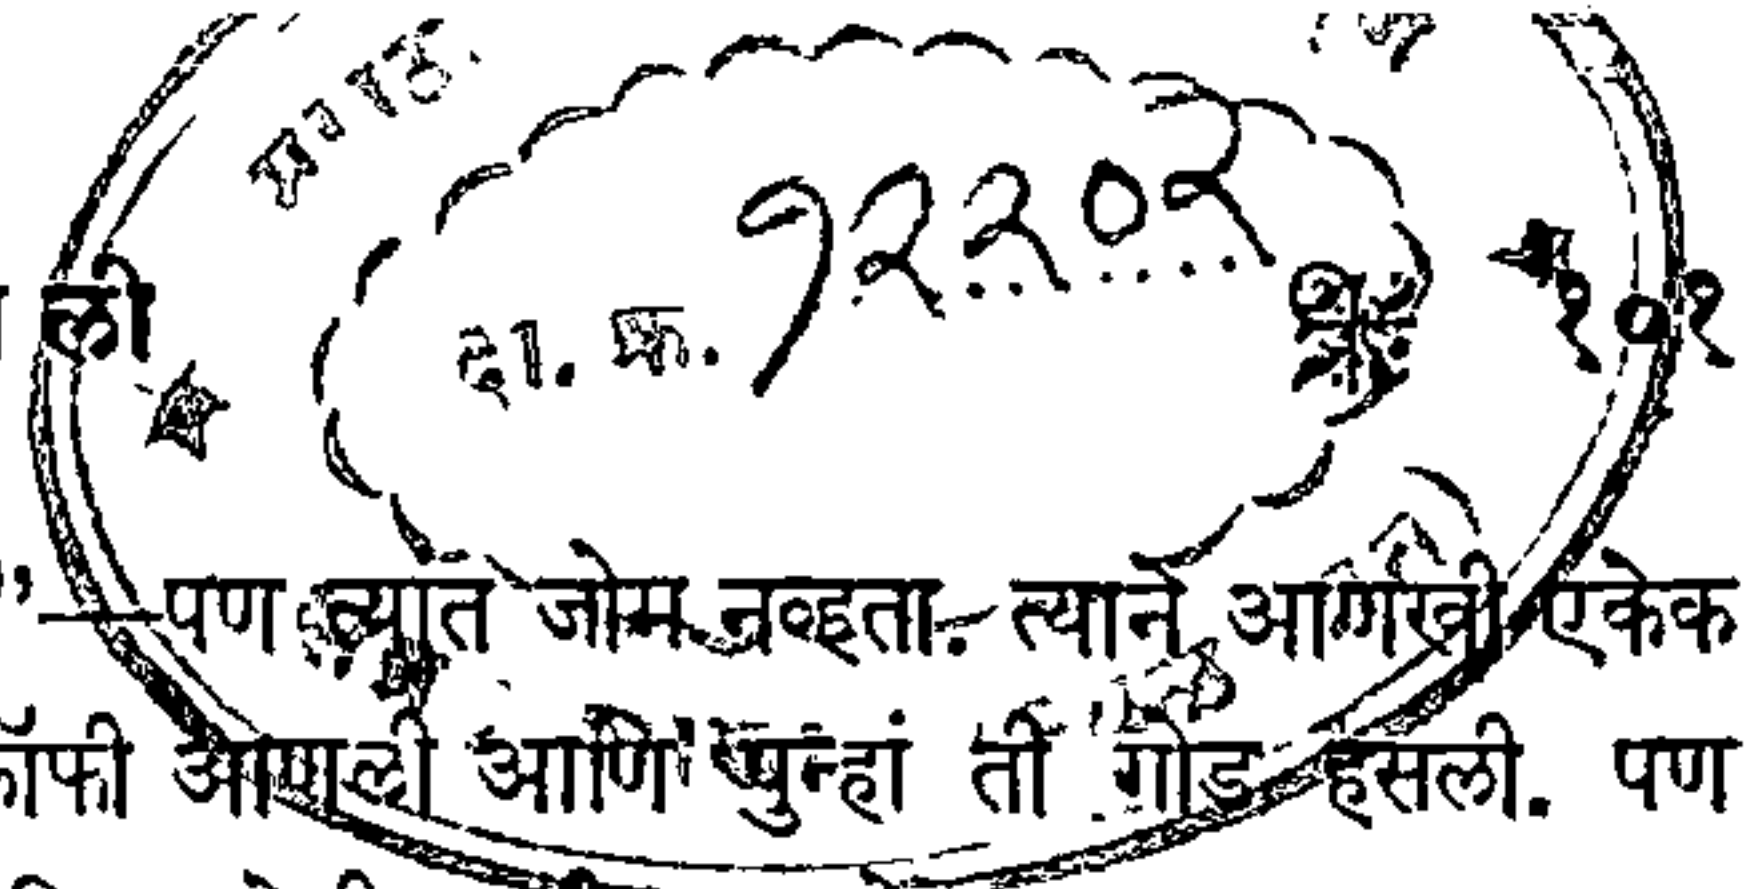 दा. क्र. १२२०२
ली १०१
पण त्यात जोम नव्हता. त्याने आणखी एकेक
कॉफी आणली आणि पुन्हां ती गोड हसली. पण